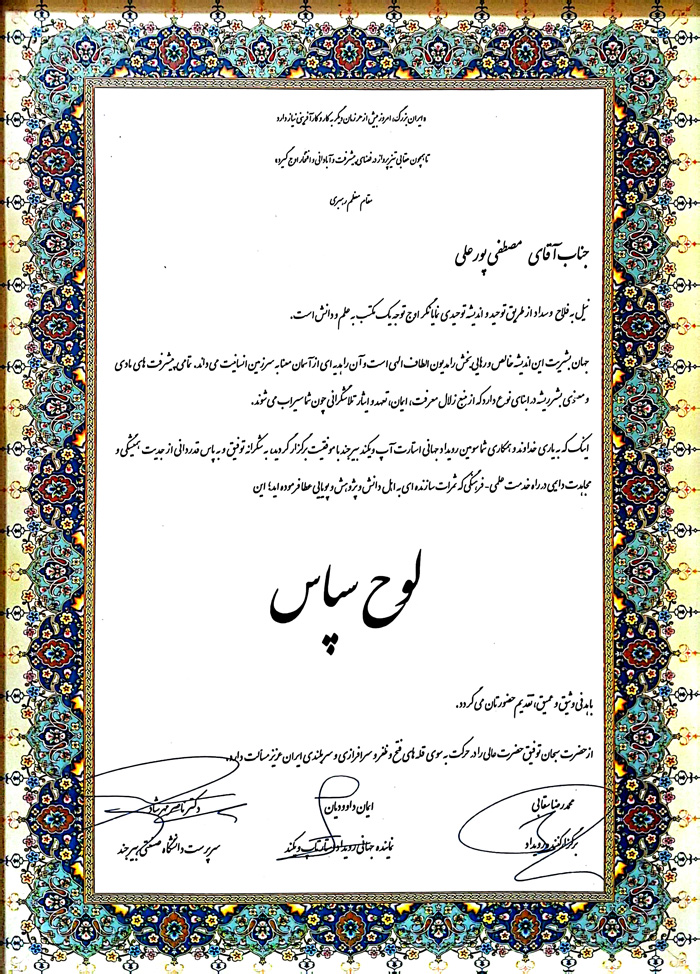 «ایران بزرگ، امروز بیش از هر زمان دیگر به کار و کارآفرینی نیاز دارد
تا همچون عقابی تیزپرواز در فضای پیشرفت و آبادانی و افتخار اوج گیرد»
مقام معظم رهبری
جناب آقای مصطفی پور علی
نیل به فلاح و سداد از طریق توحید و اندیشه توحیدی نمایانگر اوج توجه یک مکتب به علم و دانش است.
جهان بشریت این اندیشه خالص و رهایی بخش را مدیون الطاف الهی است و آن را هدیه ای از آسمان معنا به سرزمین انسانیت می داند. تمامی پیشرفت های مادی
و معنوی بشر ریشه در ابنای نوع دارد که از منبع زلال معرفت، ایمان، تعهد و ایثار تلاشگرانی چون شما سیراب می شوند.
اینک که به یاری خداوند و همکاری شما سومین رویداد جهانی استارت آپ ویکند بیرجند با موفقیت برگزار گردید، به شکرانه توفیق و به پاس قدردانی از جدیت همیشگی و
مجاهدت دایمی در راه خدمت علمی - فرهنگی که ثمرات سازنده ای به اهل دانش و پژوهش و پویایی عطا فرموده اید؛ این
لوح سپاس
با بدنی وثیق و عمیق، تقدیم حضورتان می گردد.
از حضرت سبحان توفیق حضرت عالی را در حرکت به سوی قله های فتح و ظفر و سرافرازی و سربلندی ایران عزیز مسألت دارد.
محمدرضا سقابی ایمان داوودیان دکتر ناصر مهرشاد
برگزار کننده رویداد نماینده جهانی رویداد استارت آپ ویکند سرپرست دانشگاه صنعتی بیرجند